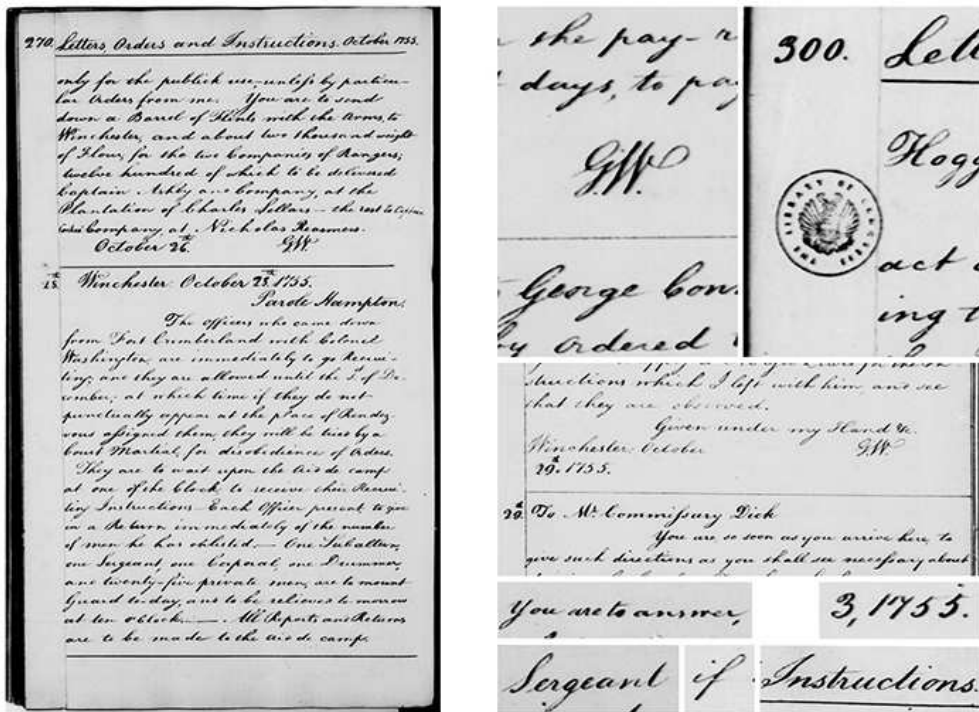 270. Letters, Orders and Instructions. October 1755.
only for the publick use, unless by particu-
lar Orders from me. You are to send
down a Barrel of Flints with the Arms, to
Winchester, and about two thousand weight
of Flour, for the two Companies of Rangers;
twelve hundred of which to be delivered
Captain Ashby and Company, at the
Plantation of Charles Sellars - the rest to Captain
Cockes Company, at Nicholas Reasmers.
October 26th. G.W.
28th. Winchester. October 28th. 1755.
Parole Hampton.
The Officers who came down
from Fort Cumberland with Colonel
Washington, are immediately to go Recrui-
ting; and they are allowed until the 1st. of De-
cember; at which time if they do not
punctually appear at the place of Rendez-
vous assigned them, they will be tried by a
Court Martial, for disobedience of Orders.
They are to wait upon the Aid de camp
at one of the Clock, to receive their Recrui-
ting Instructions. Each Officer present to give
in a Return immediately of the number
of men he has enlisted. - One Subaltern,
one Sergeant, one Corporal, one Drummer,
and twenty-five private men, are to mount
Guard to day, and to be relieved to morrow
at ten oclock. - All Reports and Returns
are to be made to the Aid de camp.
the pay-r
days, to pay
G.W.
George Con.
by ordered
300. Lett
Hogg
LIBRARY OF CONGRESS
act
ing t
structions which I left with him, and see
that they are observed.
Given under my Hand &c.
Winchester. October G.W.
29th. 1755.
29th. To Mr. Commissary Dick
You are, so soon as you arrive here, to
give such directions as you shall see necessary about
You are to answer,
3, 1755.
Sergeant
if
Instructions